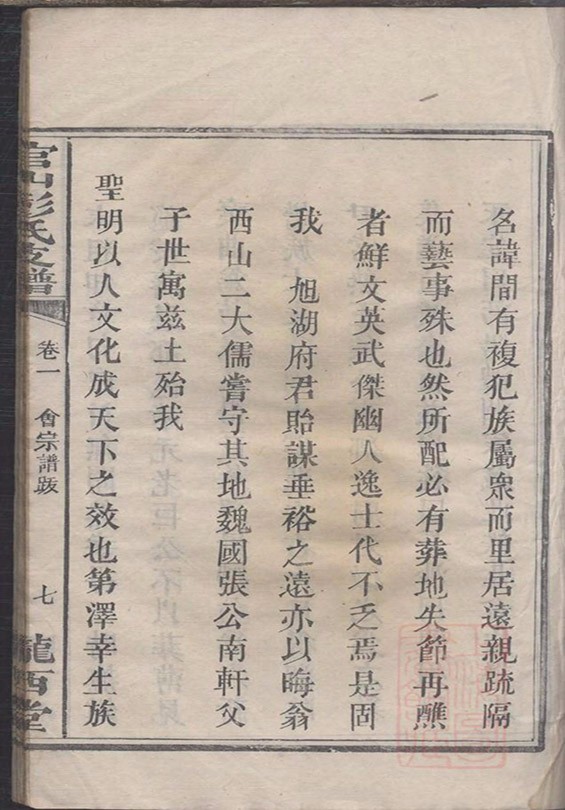 名諱間有複犯族屬衆而里居遠親疏隔
而藝事殊也然所配必有葬地失節再醮
者鮮文英武傑幽人逸士代不乏焉是固
我 旭湖府君貽謀垂裕之遠亦以晦翁
西山二大儒嘗守其地魏國張公南軒父
子世寓兹土殆我
聖明以人文化成天下之效也第澤幸生族
官山彭氏支譜 卷一 會宗譜跋 七 隴西堂